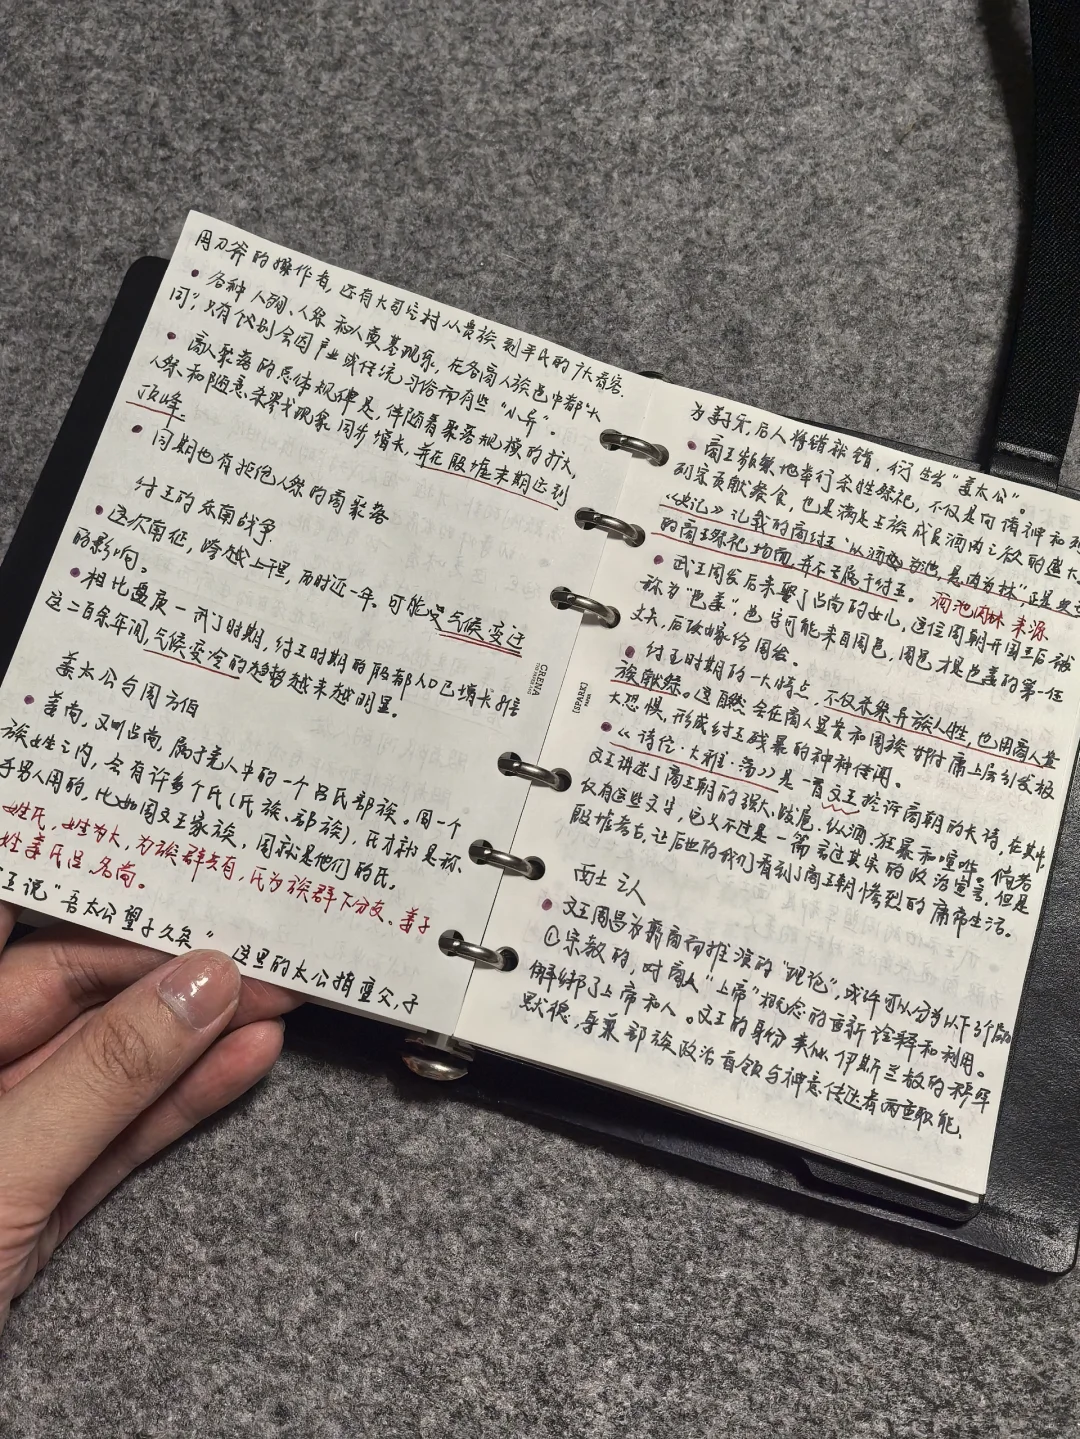 用刀斧的操作者,还有大司空村从贵族到平民的广大看客.
• 各种人殉、人祭和人奠基现象,在各商人族邑中都"大
同",只有代别会因产业或传统习俗而有些"小异"。
• 商人聚落的总体规律是,伴随着聚落规模的扩大,
人祭和随意杀戮现象同步增长,并在殷墟末期达到
顶峰.
• 同期也有拒绝人祭的商聚落
纣王的东南战争
• 这次南征,跨越上千里,历时近一年.可能受气候变迁
的影响。
• 相比盘庚—武丁时期,纣王时期的殷都人口已增长
这二百余年间,气候变冷的趋势越来越明显.
姜太公与周方伯
• 姜尚,又叫吕尚,属于羌人中的一个吕氏部族。同一个
族姓之内,会有许多个氏(氏族、部族),氏才是称
乎男人用的,比如周文王家族,周就是他们的氏。
姓氏,姓为大,为族群共有,氏为族群下分支、姜子
姓姜氏吕名尚。
王说"吾太公望子久矣" 这里的太公指亶父,子
CRENA
[SPARK]
为姜子牙,后人将错就错,衍生出"姜太公"。
• 商王频繁地举行杀牲祭祀,不仅是向诸神和
列宗贡献餐食,也是满足王族成员酒肉之欲的盛大
《史记》记载的商纣王"以酒为池,悬肉为林"正是典型
的商王祭祀场面,并不专属于纣王。 酒池肉林来源
• 武王周发后来娶了吕尚的女儿,这位周朝开国王后被
称为"邑姜".邑字可能来自周邑,周邑才是邑姜的第一任
丈夫,后改嫁给周发。
• 纣王时期的一大特点,不仅杀祭异族人牲,也用商人贵
族献祭。这自然会在商人显贵和周族附庸上层引发极
大恐惧,形成纣王残暴的种种传闻。
• 《诗经·大雅·荡》是一首文王控诉商朝的长诗,在其中,
文王讲述了商王朝的强大、跋扈、纵酒、狂暴和喧哗。倘若
仅有这些文字,它又不过是一篇言过其实的政治宣言,但是
殷墟考古,让后世的我们看到了商王朝惨烈的席常生活。
西土之人
• 文王周昌为翦商而推演的"理论",或许可以分为以下3个层面
①宗教的,对商人"上帝"概念的重新诠释和利用。
解绑了上帝和人。文王的身份类似伊斯兰教的穆罕
默德,身兼部族政治首领与神意传达者两重职能.